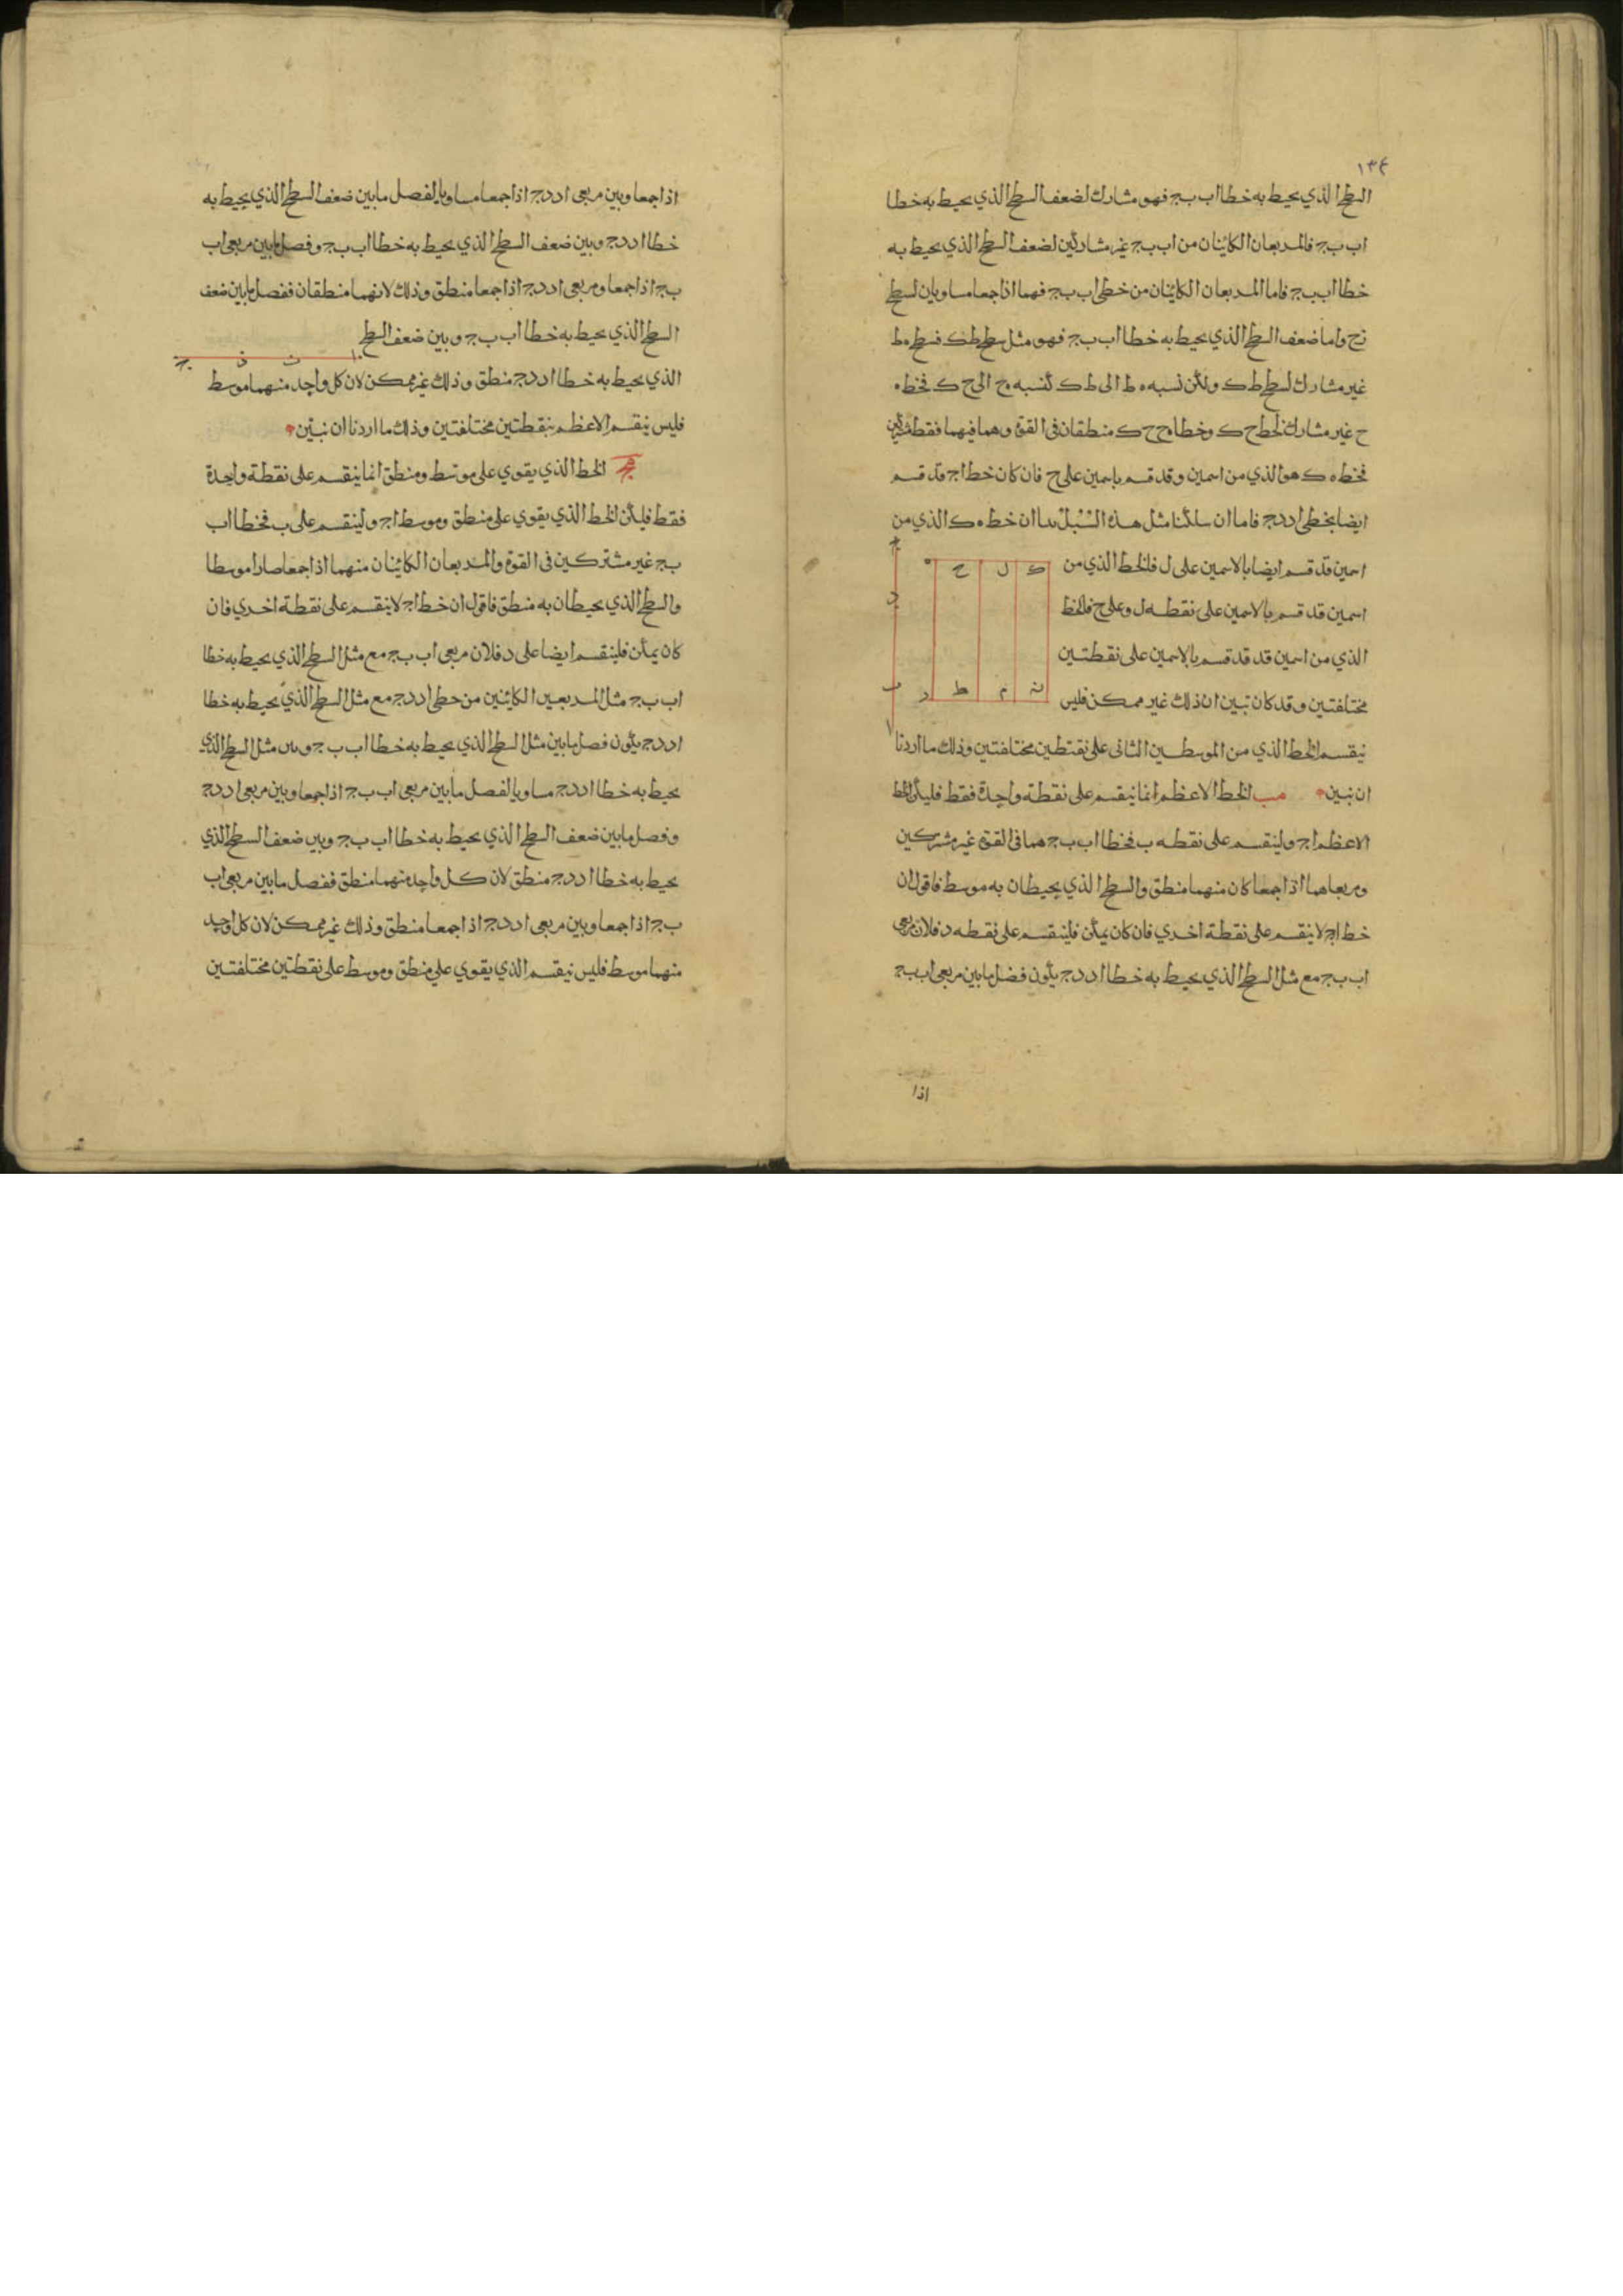 ١٣٤
السطح الذي يحيط به خطا اب بج فهو مشارك لضعف السطح الذي يحيط به خطا
اب بج فالمربعان الكائنان من اب بج غير مشاركين لضعف السطح الذي يحيط به
خطا اب بج فاما المربعان الكائنان من خطى اب بج فهما اذا جمعا مساويان لسطح
واما ضعف السطح الذي يحيط به خطا اب بج فهو مثل سطح طك فسطح ه ط
غير مشارك لسطح ط ك ولكن نسبه ه ط الى ط ك كنسبه ه ح الى ح ك فخط ه
ح غير مشارك لخط ح ك وخطا ه ح ح ك منطقان فى القوة وهما فيهما فقط مشتركين
فخط ه ك هو الذي من اسمين وقد قسم باسمين على ح فان كان خط اج قد قسم
ايضا بخطى اد دج فاما ان سلكنا مثل هذه السبل بدا ان خط ه ك الذي من
اسمين قد قسم ايضا بالاسمين على ل فالخط الذي من
اسمين قد قسم بالاسمين على نقطه ل وعلى ح فالخط
الذي من اسمين قد قد قسم بالاسمين على نقطتين
مختلفتين وقد كان تبين ان ذلك غير ممكن فليس
ك ل ح ه
ن م ط ر
ج
د
ب
ا
ينقسم الخط الذي من الموسطين الثانى على نقتطين مختلفتين وذلك ما اردنا
ان نبين مب الخط الاعظم انما ينقسم على نقطة واحدة فقط فليكن الخط
الاعظم اج ولينقسم على نقطه ب فخطا اب بج هما فى القوة غير مشتركين
ومربعاهما اذا جمعا كان منهما منطق والسطح الذي يحيطان به موسط فاقول ان
خط اج لا ينقسم على نقطة اخري فان كان يمكن فلينقسم على نقطه د فلان مربعى
اب بج مع مثل السطح الذي يحيط به خطا اد دج يكون فضل ما بين مربعى اب بج
اذا
اذا جمعا وبين مربعى اد دج اذا جمعا مساويا لفصل ما بين ضعف السطح الذي يحيط به
خطا اد دج وبين ضعف السطح الذي يحيط به خطا اب بج وفصل ما بين مربعى اب
بج اذا جمعا ومربعى اد دج اذا جمعا منطق وذلك لانهما منطقان ففصل ما بين ضعف
السطح الذي يحيط به خطا اب بج وبين ضعف السطح
ا ب د ج
الذي يحيط به خطا اد دج منطق وذلك غير ممكن لان كل واحد منهما موسط
فليس ينقسم الاعظم بنقطتين مختلفتين وذلك ما اردنا ان نبين
مج الخط الذي يقوي على موسط ومنطق انما ينقسم على نقطة واحدة
فقط فليكن الخط الذي يقوي على منطق وموسط اج ولينقسم على ب فخطا اب
بج غير مشتركين فى القوة والمربعان الكائنان منهما اذا جمعا صارا موسطا
والسطح الذي يحيطان به منطق فاقول ان خط اج لا ينقسم على نقطة اخري فان
كان يمكن فلينقسم ايضا على د فلان مربعى اب بج مع مثل السطح الذي يحيط به خطا
اب بج مثل المربعين الكائنين من خطى اد دج مع مثل السطح الذي يحيط به خطا
اد دج يكون فصل ما بين مثل السطح الذي يحيط به خطا اب بج وبين مثل السطح الذي
يحيط به خطا اد دج مساويا لفصل ما بين مربعى اب بج اذا جمعا وبين مربعى اد دج
وفصل ما بين ضعف السطح الذي يحيط به خطا اب بج وبين ضعف السطح الذي
يحيط به خطا اد دج منطق لان كل واحد منهما منطق ففصل ما بين مربعى اب
بج اذا جمعا وبين مربعى اد دج اذا جمعا منطق وذلك غير ممكن لان كل واحد
منهما موسط فليس ينقسم الذي يقوي على منطق وموسط على نقطتين مختلفتين